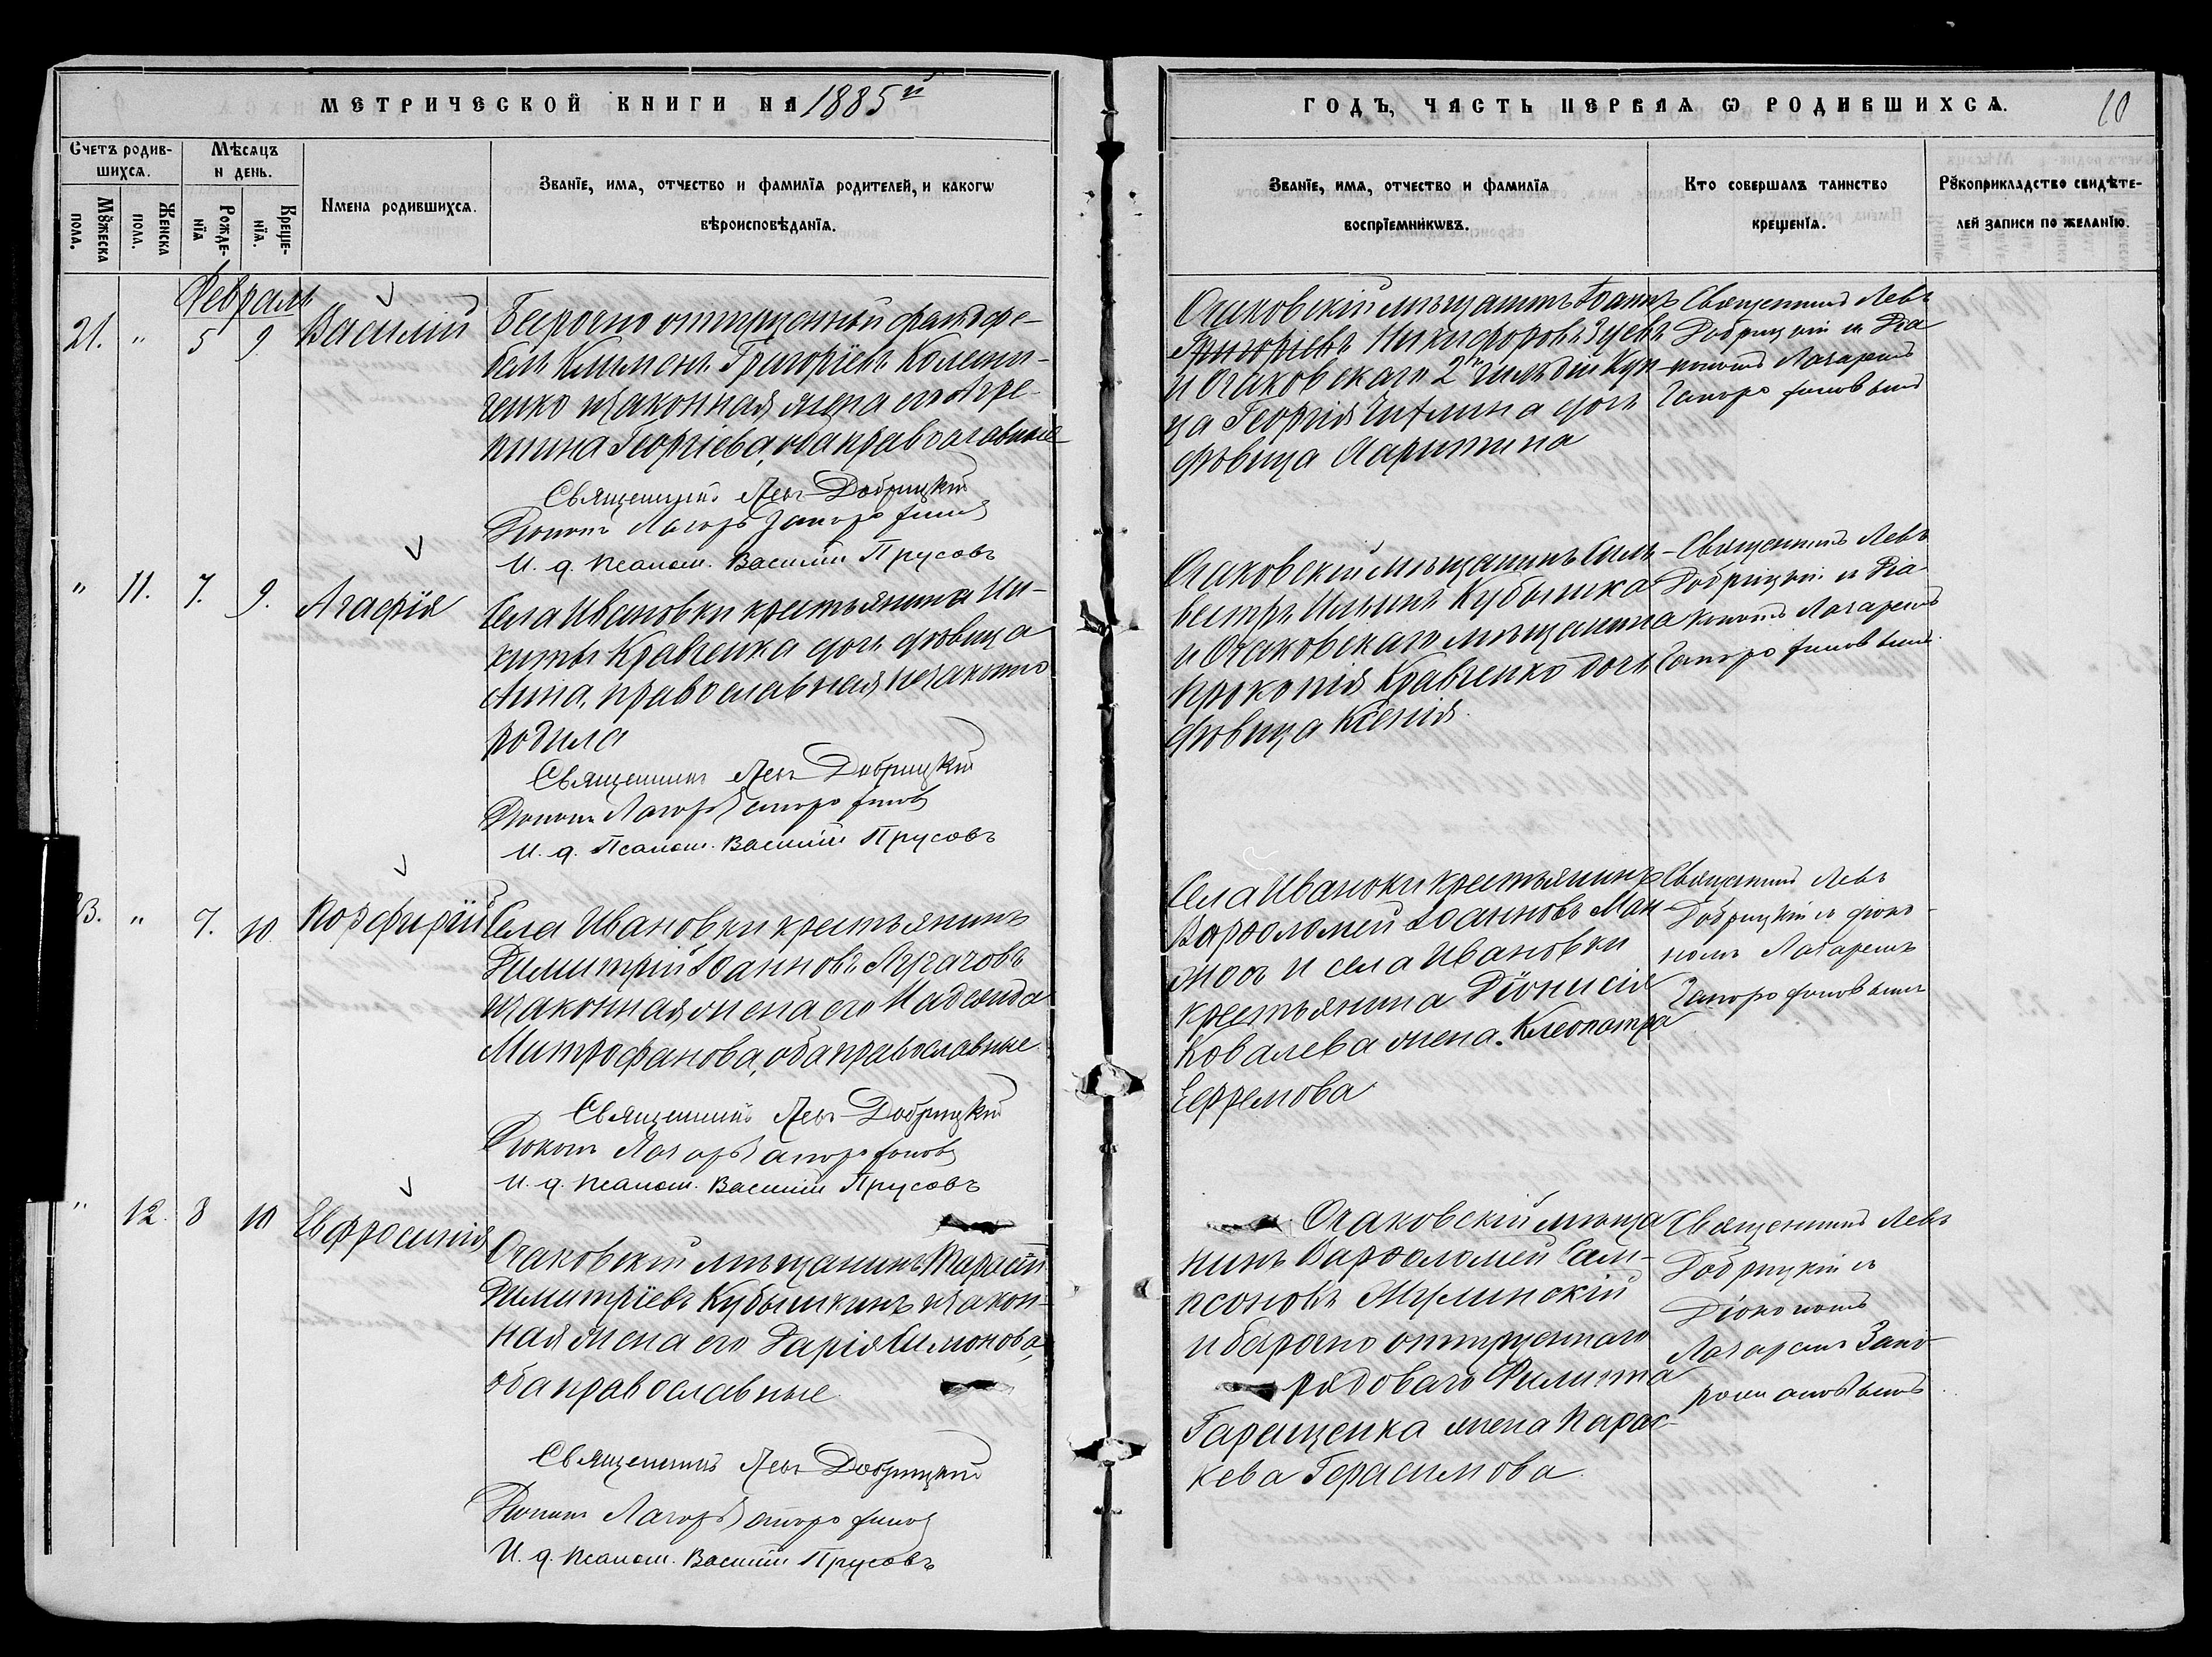 МЕТРИЧЕСКОЙ КНИГИ НА 1885й
ГОДЪ, ЧАСТЬ ПЕРВАѦ Ѡ РОДИВШИХСѦ.
10
Счетъ родив-
шихсѧ.
Мѣсѧцъ
и день.
Мꙋжеска
пола.
Женска
пола.
Рожде-
нїѧ
Креще-
нїѧ.
Имена родившихсѧ.
Званїе, имѧ, отчество и фамилїѧ родителей, и какогѡ
вѣроисповѣданїѧ.
Званїе, имѧ, отчество и фамилїѧ
воспрїемникѡвъ.
Кто совершалъ таинство
крещенїѧ.
Рꙋкоприкладство свидѣте-
лей записи по желанїю.
Февраль
21. " 5 9. Василій
Безсрочно отпущенный фельдфе-
бель Климентъ Григоріевъ
и законная жена его Агре-
пина Георгіева, оба православные
Священникъ Левъ Добрицкій
Діаконъ Лазарь
И. д. псалом. Василій Прусовъ
Очаковскій мѣщанинъ Іоаннъ
Григоріевъ Никифоровъ
и Очаковскаго 2й гильдіи Куп-
ца Георгія дочь
дѣвица
Священникъ Левъ
Добрицкій и Діа
кономъ Лазаремъ
" 11. 7. 9. Агафія
Села Ивановки крестьянина Ни-
киты Кравченка дочь дѣвица
Анна, православная незаконно
родила
Священникъ Левъ Добрицкій
Діаконъ Лазарь
И. д. Псалом. Василій Прусовъ
Очаковскій мѣщанинъ Силь-
вестръ Ильинъ Кубышка
и Очаковскаго мѣщанина
Прокопія Кравченко дочь
дѣвица Ксенія.
Священникъ Левъ
Добрицкій и Діа
кономъ Лазаремъ
3. " 7. 10. Порфирій
Села Ивановки крестьянинъ
Димитрій Іоанновъ
и законная жена его Надежда
Митрофанова, оба православные
Священникъ Левъ Добрицкій
Діаконъ Лазарь
И. д. псалом. Василій Прусовъ
Села Ивановки крестьянинъ
Варѳоломей Іоанновъ Ман
и села Ивановки
крестьянина Діонисія
Ковалева жена. Клеопатра
Ефремова
Священникъ Левъ
Добрицкій съ діако-
номъ Лазаремъ
" 12. 8 10 Евфросинія
Очаковскій мѣщанинъ Тарасій
Димитріевъ Кубышкинъ и закон-
ная жена его Дарія Симонова,
оба православные
Священникъ Левъ Добрицкій
Діаконъ Лазарь
И. д. псалом. Василій Прусовъ
Очаковскій мѣща
нинъ Варѳоломей Сам-
псоновъ
и безсрочно отпущеннаго
рядоваго Филиппа
Гаращенка жена Парас-
кева Герасимова
Священникъ Левъ
Добрицкій съ
Діакономъ
Лазаремъ